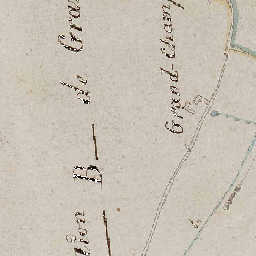 tion B de Gra
Grand-Champ